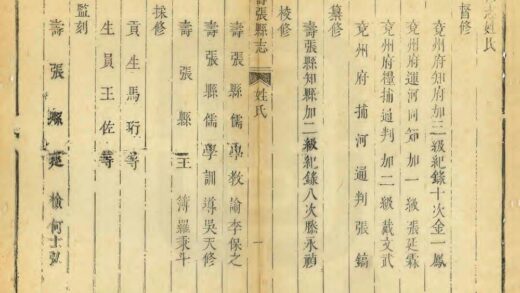 志姓氏
督修
兗州府知府加三級紀錄十次金一鳳
兗州府運河同知加一級張延霖
兗州府糧捕通判加二級戴文武
兗州府捕河通判張鎬
纂修
壽張縣知縣加二級紀錄八次滕永禎
校修
壽張縣志
姓氏
一
壽張縣儒學教諭李保之
壽張縣儒學訓導吳天修
壽張縣主簿羅秉斗
採修
貢生馬珩等
生員王佐等
監刻
壽張縣典檢何士弘